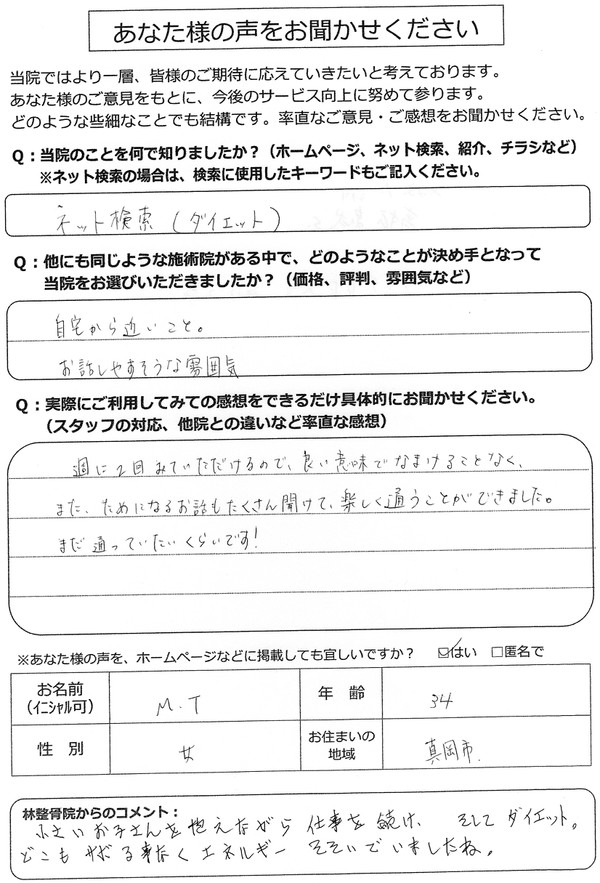 あなた様の声をお聞かせください
当院ではより一層、皆様のご期待に応えていきたいと考えております。
あなた様のご意見をもとに、今後のサービス向上に努めて参ります。
どのような些細なことでも結構です。率直なご意見・ご感想をお聞かせください。
Q：当院のことを何で知りましたか？（ホームページ、ネット検索、紹介、チラシなど）
※ネット検索の場合は、検索に使用したキーワードもご記入ください。
ネット検索（ダイエット）
Q：他にも同じような施術院がある中で、どのようなことが決め手となって
当院をお選びいただきましたか？（価格、評判、雰囲気など）
自宅から近いこと。
お話しやすそうな雰囲気
Q：実際にご利用してみての感想をできるだけ具体的にお聞かせください。
（スタッフの対応、他院との違いなど率直な感想）
週に2回みていただけるので、良い意味でなまけることなく、
また、ためになるお話もたくさん聞けて、楽しく通うことができました。
まだ通っていたいくらいです！
※あなた様の声を、ホームページなどに掲載しても宜しいですか？ ☑はい □匿名で
お名前 M.T 年 齢 34
（ｲﾆｼｬﾙ可）
性 別 女 お住まいの 真岡市.
地域
林整骨院からのコメント：
小さいお子さんを抱えながら 仕事を続け、 そして ダイエット。
どこも サボる事なく エネルギー そそいでいましたね。